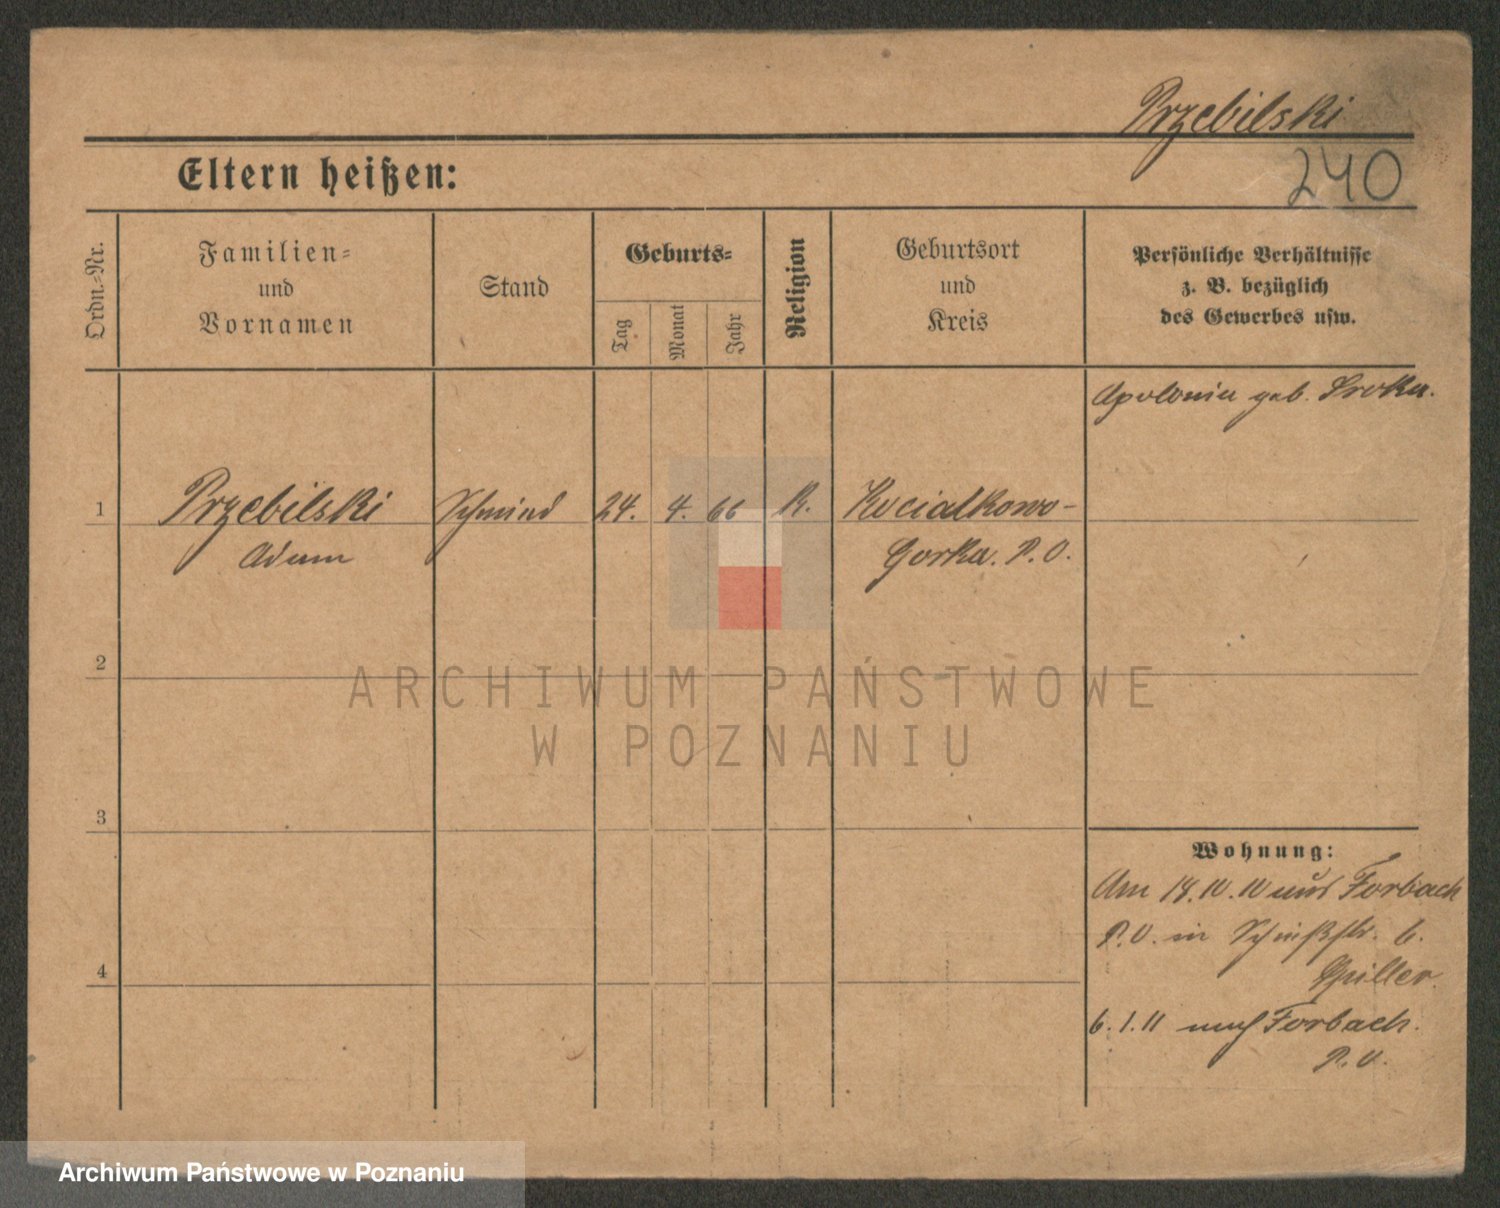 Przebilski
240
Eltern heißen:
Ordn.-Nr.
Familien-
und
Vornamen
Stand
Geburts-
Tag
Monat
Jahr
Religion
Geburtsort
und
Kreis
Persönliche Verhältnisse
z. B. bezüglich
des Gewerbes usw.
Apolonia geb. Sroka.
1
Przebilski
Adam
Schmied
24.
4.
66
K.
Kocialkowo-
Gorka. P. O.
2
ARCHIWUM PAŃSTWOWE
W POZNANIU
3
Wohnung:
Am 18. 10. 10 aus Forbach
P. O. in Schießstr. 6.
4
6. 1. 11 nach Forbach.
P. O.
Archiwum Państwowe w Poznaniu